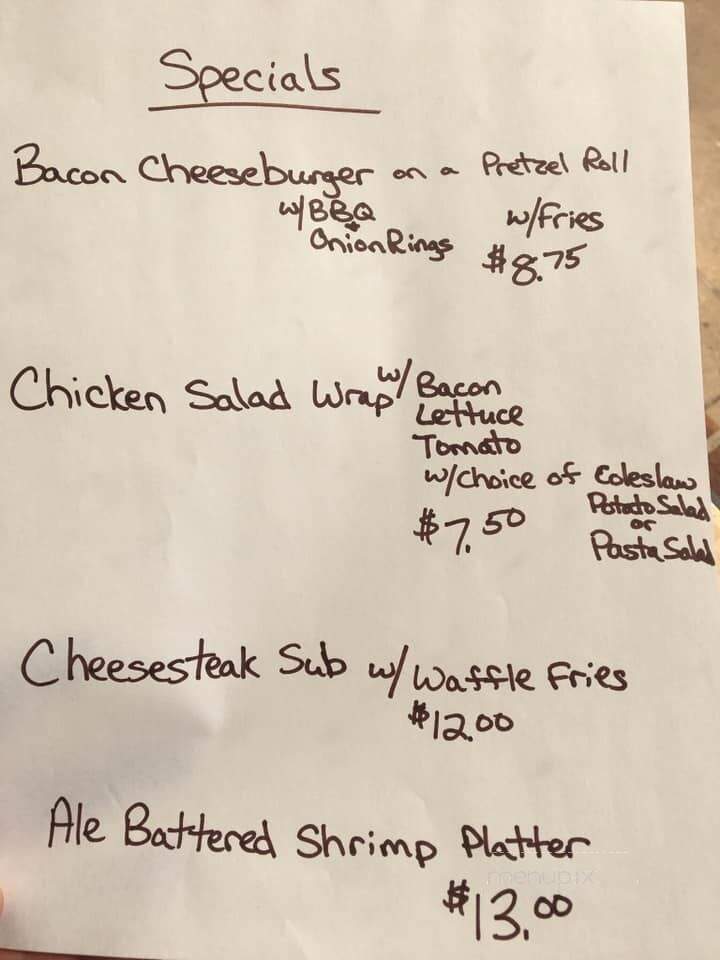 Specials
Bacon Cheeseburger on a Pretzel Roll
w/BBQ w/fries
+
Onion Rings $8.75
Chicken Salad Wrap w/ Bacon
Lettuce
Tomato
w/choice of Coleslaw
Potato Salad
$7.50 or
Pasta Salad
Cheesesteak Sub w/ Waffle Fries
$12.00
Ale Battered Shrimp Platter
menupix
$13.00